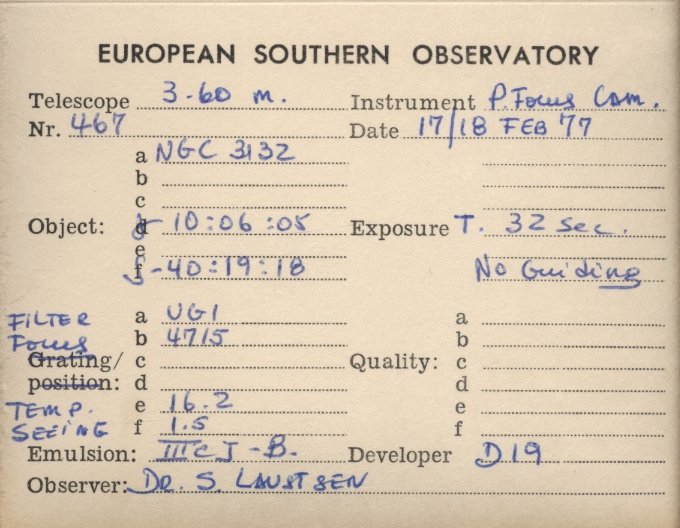 EUROPEAN SOUTHERN OBSERVATORY
Telescope 3.60 m. Instrument P. Focus Cam.
Nr. 467 Date 17/18 FEB '77
a NGC 3132
b
c
Object: d 10:06:05 Exposure T. 32 sec.
e
f -40:19:18 No Guiding
FILTER a UG1 a
Focus b 4715 b
Grating/ c Quality: c
position: d d
TEMP. e 16.2 e
SEEING f 1.5 f
Emulsion: IIIaJ-B. Developer D19
Observer: DR. S. LAUSTSEN